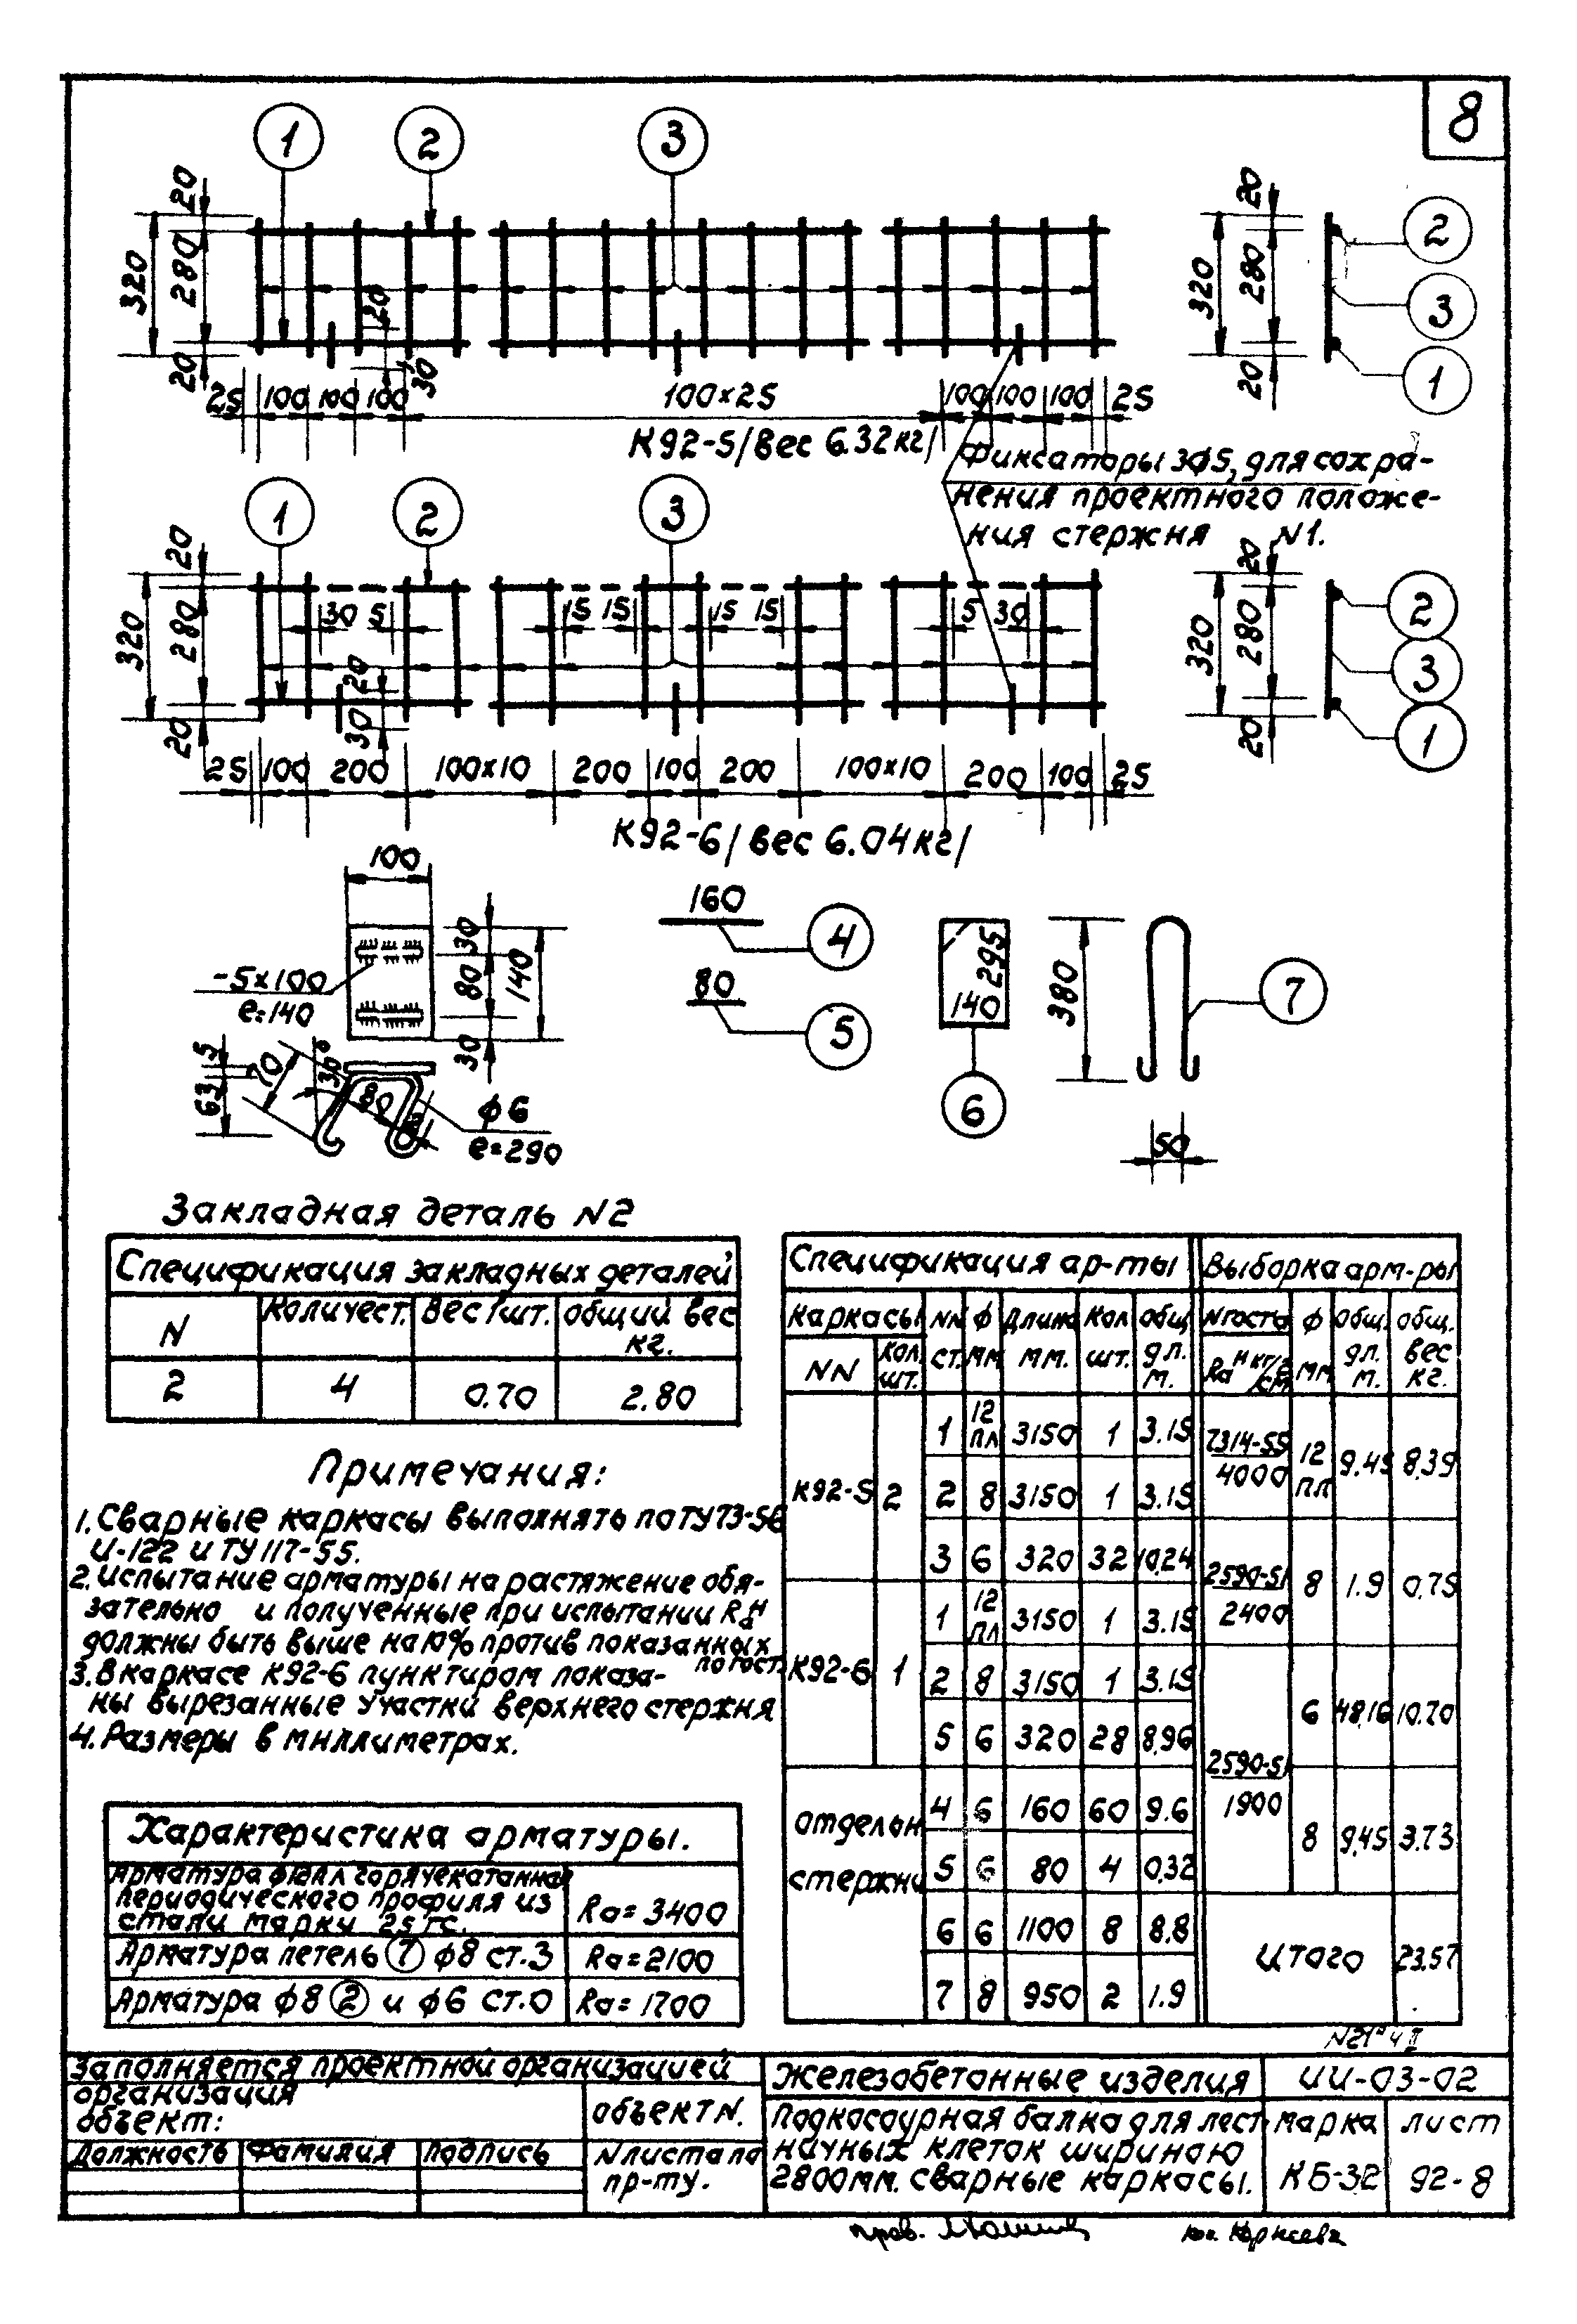 8
1 2 3
20 320 280 20
20
30
25 100 100 100 100×25 100 100 100 25
20 320 280 20
2
3
1
К92-5/вес 6.32кг/
Фиксаторы 3ϕ5, для сохра-
нения проектного положе-
ния стержня N1.
1 2 3
20 320 280 20
30 5 15 15 15 15 5 30
20
30
25 100 200 100×10 200 100 200 100×10 200 100 25
20 320 280 20
2
3
1
К92-6/вес 6.04кг/
100
30 80 140 30
-5×100
е=140
5 63 70 30° 80
ϕ6
е=290
160
4
80
5
295
140
6
380
7
50
Закладная деталь N2
Спецификация закладных деталей
N Количест. Вес 1шт. общий вес
кг.
2 4 0.70 2.80
Примечания:
1. Сварные каркасы выполнять по ТУ73-56
и-122 и ТУ117-55.
2. Испытание арматуры на растяжение обя-
зательно и полученные при испытании Rан
должны быть выше на 10% против показанных
по гост.
3. В каркасе К92-6 пунктиром показа-
ны вырезанные участки верхнего стержня
4. Размеры в миллиметрах.
Характеристика арматуры.
Арматура ϕ12пл горячекатанная
периодического профиля из
стали марки 25гс.
Ra=3400
Арматура петель 7 ϕ8 ст.3 Ra=2100
Арматура ϕ8 2 и ϕ6 ст.0 Ra=1700
Спецификация ар-ты Выборка арм-ры
каркасы NN ϕ Длина Кол общ Nгоста ϕ общ. общ.
NN кол. шт. ст. мм мм. шт. дл. м. Rан кг/см² мм дл. м. вес кг.
К92-5 2
1 12пл 3150 1 3.15
2 8 3150 1 3.15
3 6 320 32 10.24
К92-6 1
1 12пл 3150 1 3.15
2 8 3150 1 3.15
5 6 320 28 8.96
отдельн
стержни
4 6 160 60 9.6
5 6 80 4 0.32
6 6 1100 8 8.8
7 8 950 2 1.9
7314-55
4000
12пл 9.45 8.39
2590-51
2400
8 1.9 0.75
2590-51
1900
6 48.16 10.70
8 9.45 3.73
Итого 23.57
Заполняется проектной организацией
организация
объект:
объект N.
Должность Фамилия подпись
N листа по
пр-ту.
Железобетонные изделия ИИ-03-02
Подкосоурная балка для лест
ничных клеток шириною
2800мм. сварные каркасы.
марка лист
КБ-32 92-8
пров.